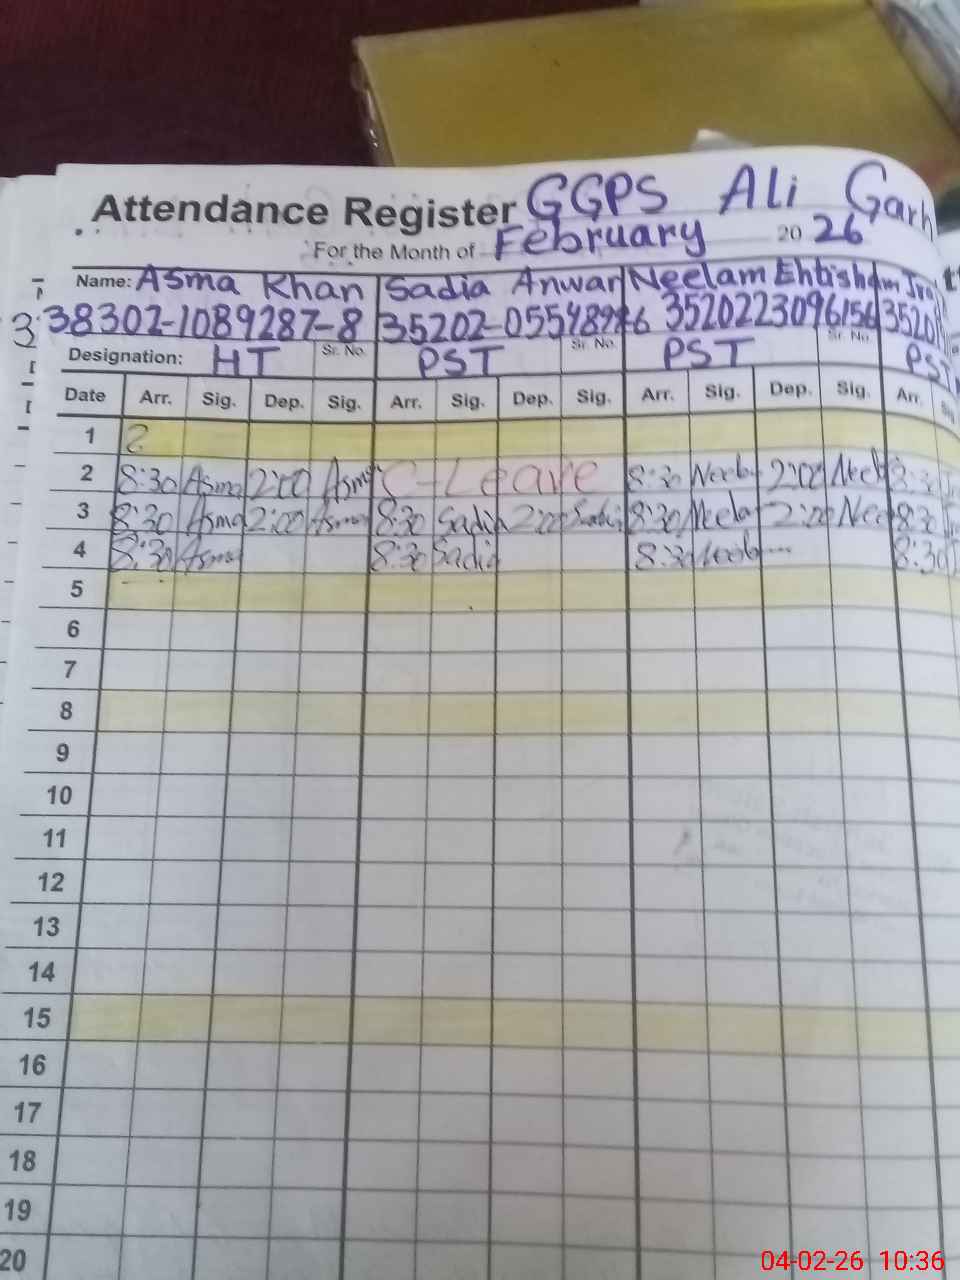 Attendance Register GGPS Ali Garh
For the Month of February 2026
Name: Asma Khan Sadia Anwar Neelam Ehtisham
38302-1089287-8 35202- 3520223096156 3520
Designation: HT Sr. No. PST Sr. No. PST Sr. No. PST
Date Arr. Sig. Dep. Sig. Arr. Sig. Dep. Sig. Arr. Sig. Dep. Sig. Arr. Sig
1
2 8:30 Asma 2:00 Asma C-Leave 8:30 Neela 2:00 Neel 8:30
3 8:30 Asma 2:00 Asma 8:30 Sadia 2:00 Sadia 8:30 Neela 2:00 Nee 8:30
4 8:30 Asma 8:30 Sadia 8:30 Neela 8:30
5
6
7
8
9
10
11
12
13
14
15
16
17
18
19
20
04-02-26 10:36